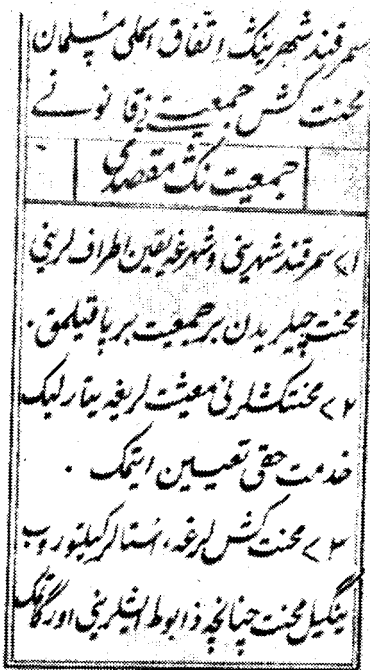 سمرقند شهرینگ اتفاق اسملی مسلمان
محنت کش جمعیتی ز قانونے
جمعیت نگ مقصدی
۱> سمرقند شهرینی وشهرغه یقین اطراف لرینی
محنت چیلریدن بر جمعیت برپا قیلمق.
۲> محنتکشلرنی معیشت لریغه یتارلیک
خدمت حقی تعیین ایتمک .
۳> محنت کش لرغه، استالر کیلتوروب
ینگیل محنت چنانچه